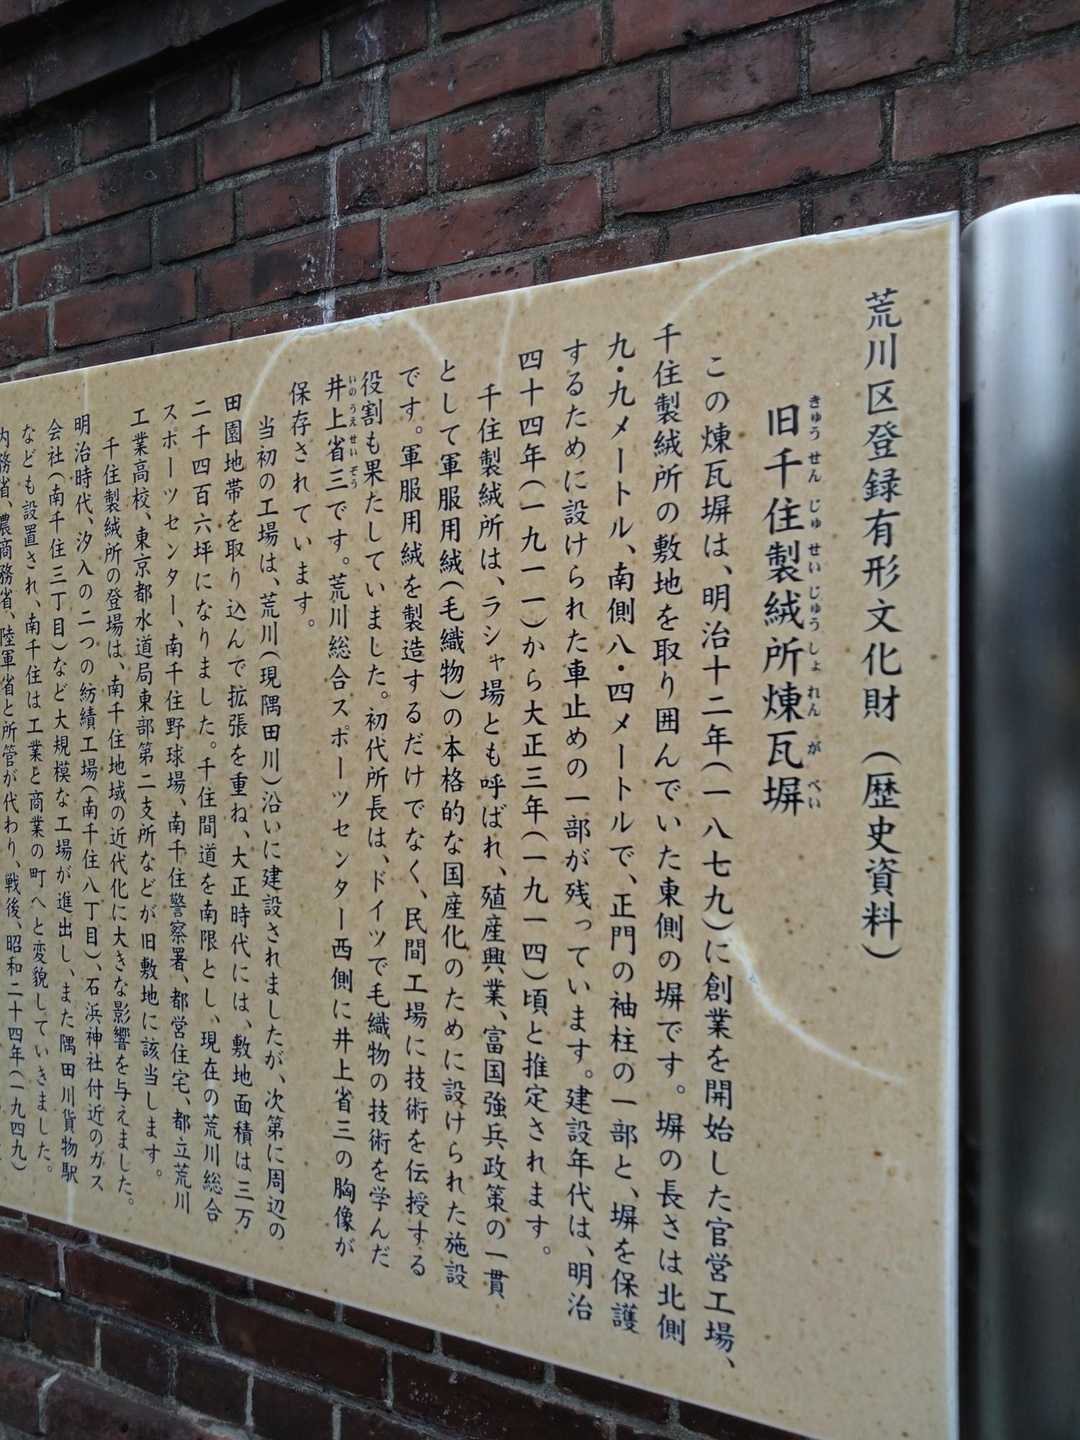 荒川区登録有形文化財（歴史資料）
きゅうせんじゅせいじゅうしょれんがべい
旧千住製絨所煉瓦塀
この煉瓦塀は、明治十二年（一八七九）に創業を開始した官営工場、
千住製絨所の敷地を取り囲んでいた東側の塀です。塀の長さは北側
九・九メートル、南側八・四メートルで、正門の袖柱の一部と、塀を保護
するために設けられた車止めの一部が残っています。建設年代は、明治
四十四年（一九一一）から大正三年（一九一四）頃と推定されます。
千住製絨所は、ラシャ場とも呼ばれ、殖産興業、富国強兵政策の一貫
として軍服用絨（毛織物）の本格的な国産化のために設けられた施設
です。軍服用絨を製造するだけでなく、民間工場に技術を伝授する
役割も果たしていました。初代所長は、ドイツで毛織物の技術を学んだ
いのうえせいぞう
井上省三です。荒川総合スポーツセンター西側に井上省三の胸像が
保存されています。
当初の工場は、荒川（現隅田川）沿いに建設されましたが、次第に周辺の
田園地帯を取り込んで拡張を重ね、大正時代には、敷地面積は三万
二千四百六坪になりました。千住間道を南限とし、現在の荒川総合
スポーツセンター、南千住野球場、南千住警察署、都営住宅、都立荒川
工業高校、東京都水道局東部第二支所などが旧敷地に該当します。
千住製絨所の登場は、南千住地域の近代化に大きな影響を与えました。
明治時代、汐入の二つの紡績工場（南千住八丁目）、石浜神社付近のガス
会社（南千住三丁目）など大規模な工場が進出し、また隅田川貨物駅
なども設置され、南千住は工業と商業の町へと変貌していきました。
内務省、農商務省、陸軍省と所管が代わり、戦後、昭和二十四年（一九四九）